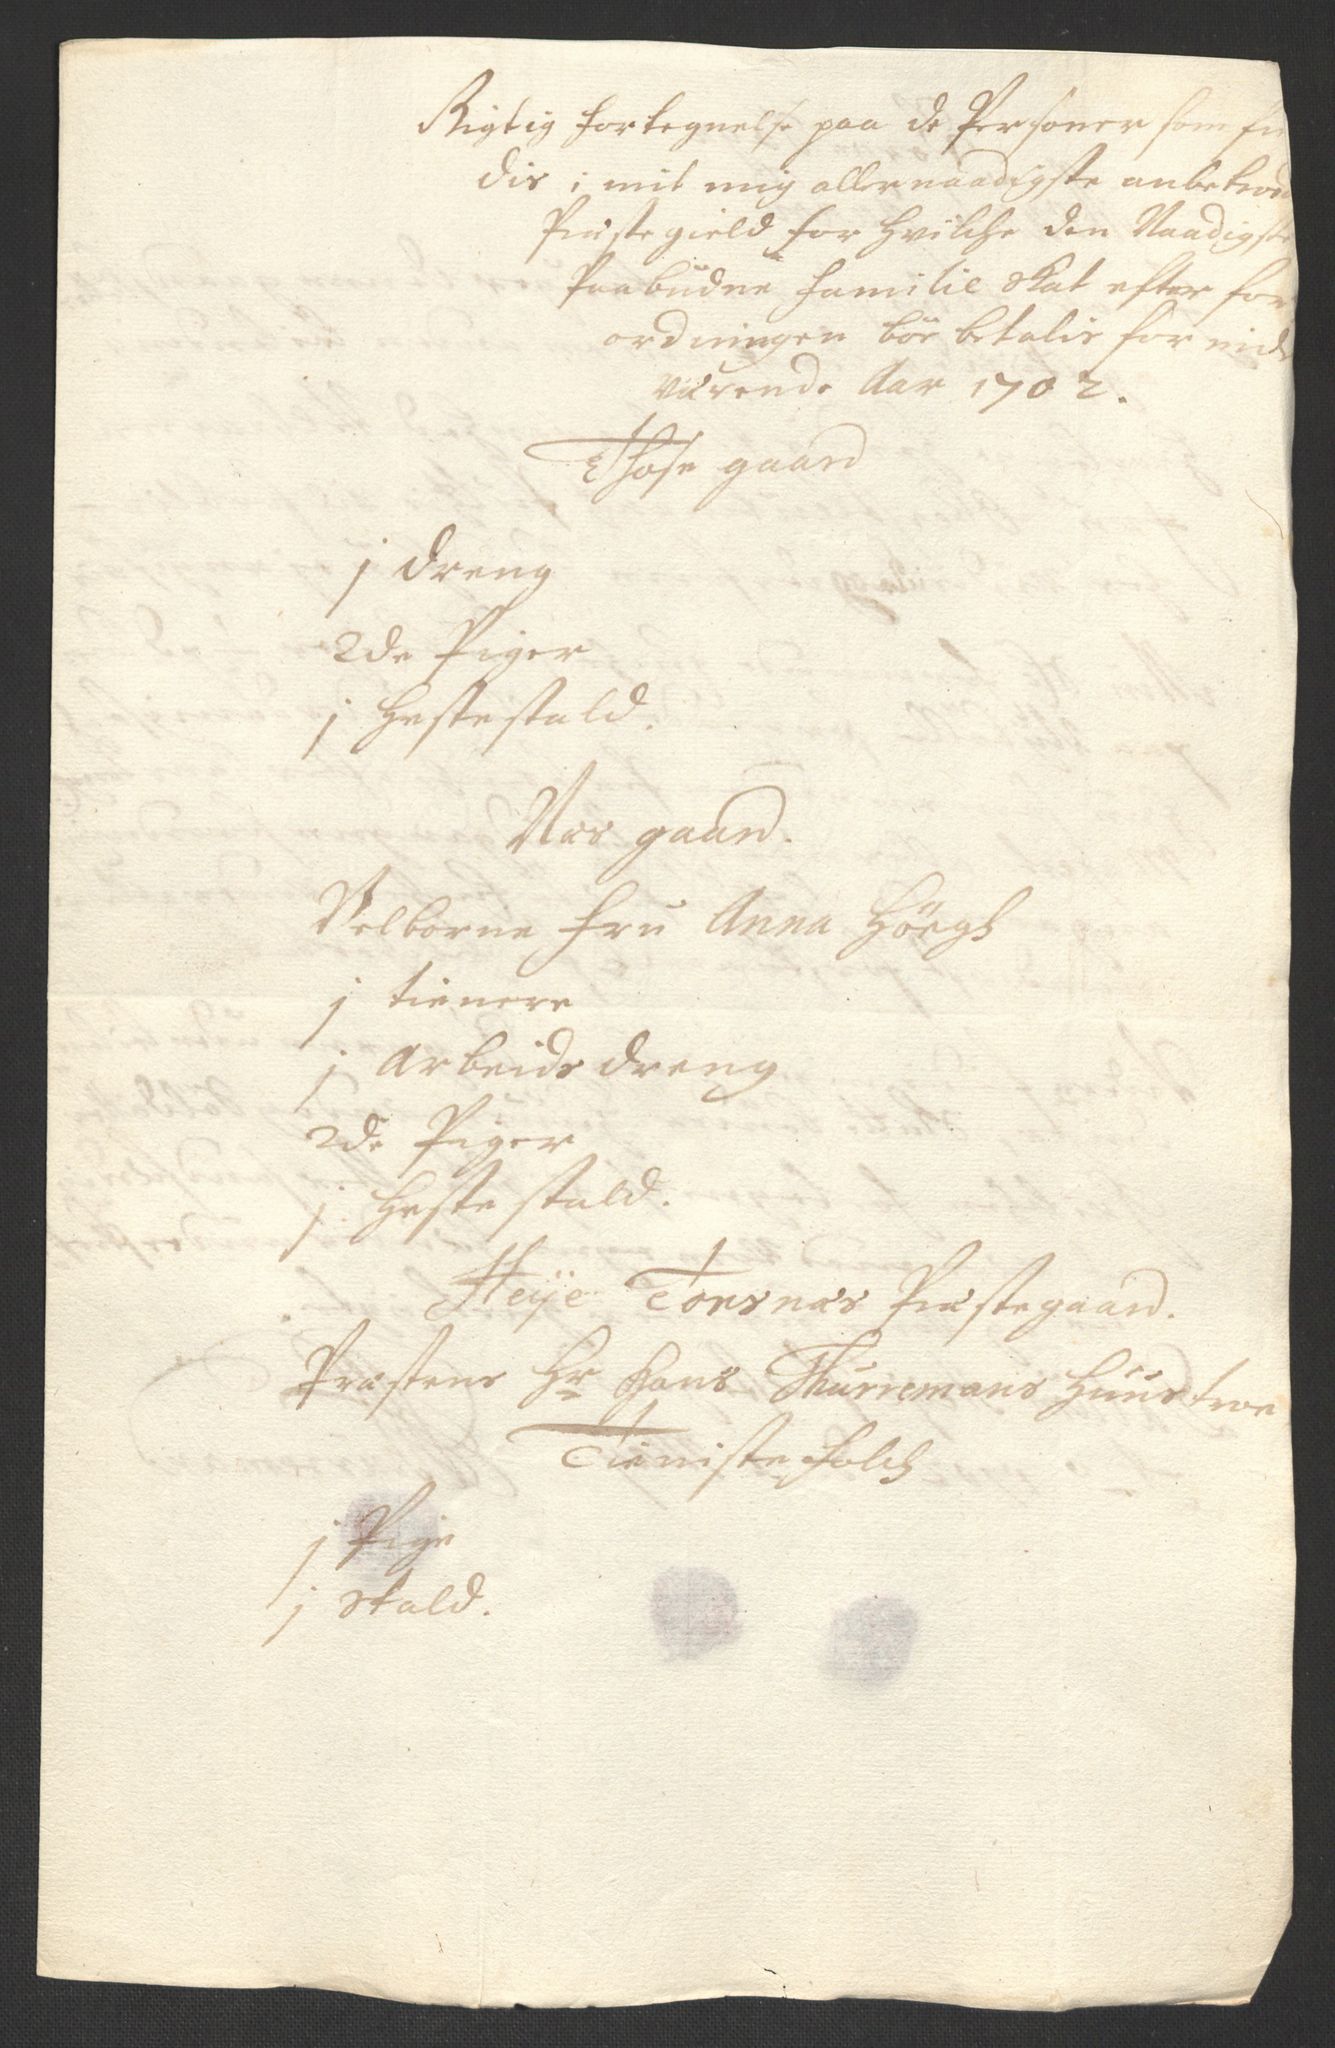 Rigtig fortegnelse paa de Personer som fin
dis i mit mig allernaadigste anbetroed
Præstegield for hvilche den Naadigste
Paabudne familie Skat efter for
ordningen bör betalis for nid
værende Aar 1702.
Those gaard
j dreng
2de Piger
j Hestestald.
Næs gaard.
Velborne fru Anna Höegh
j tienere
j Arbeids dreng
2de Piger
j Heste stald.
Heye Torsnæs Præstegaard.
Præstens Hr Hans Thurremans Huustroe
Tieniste folch
j Pige
j Stald.